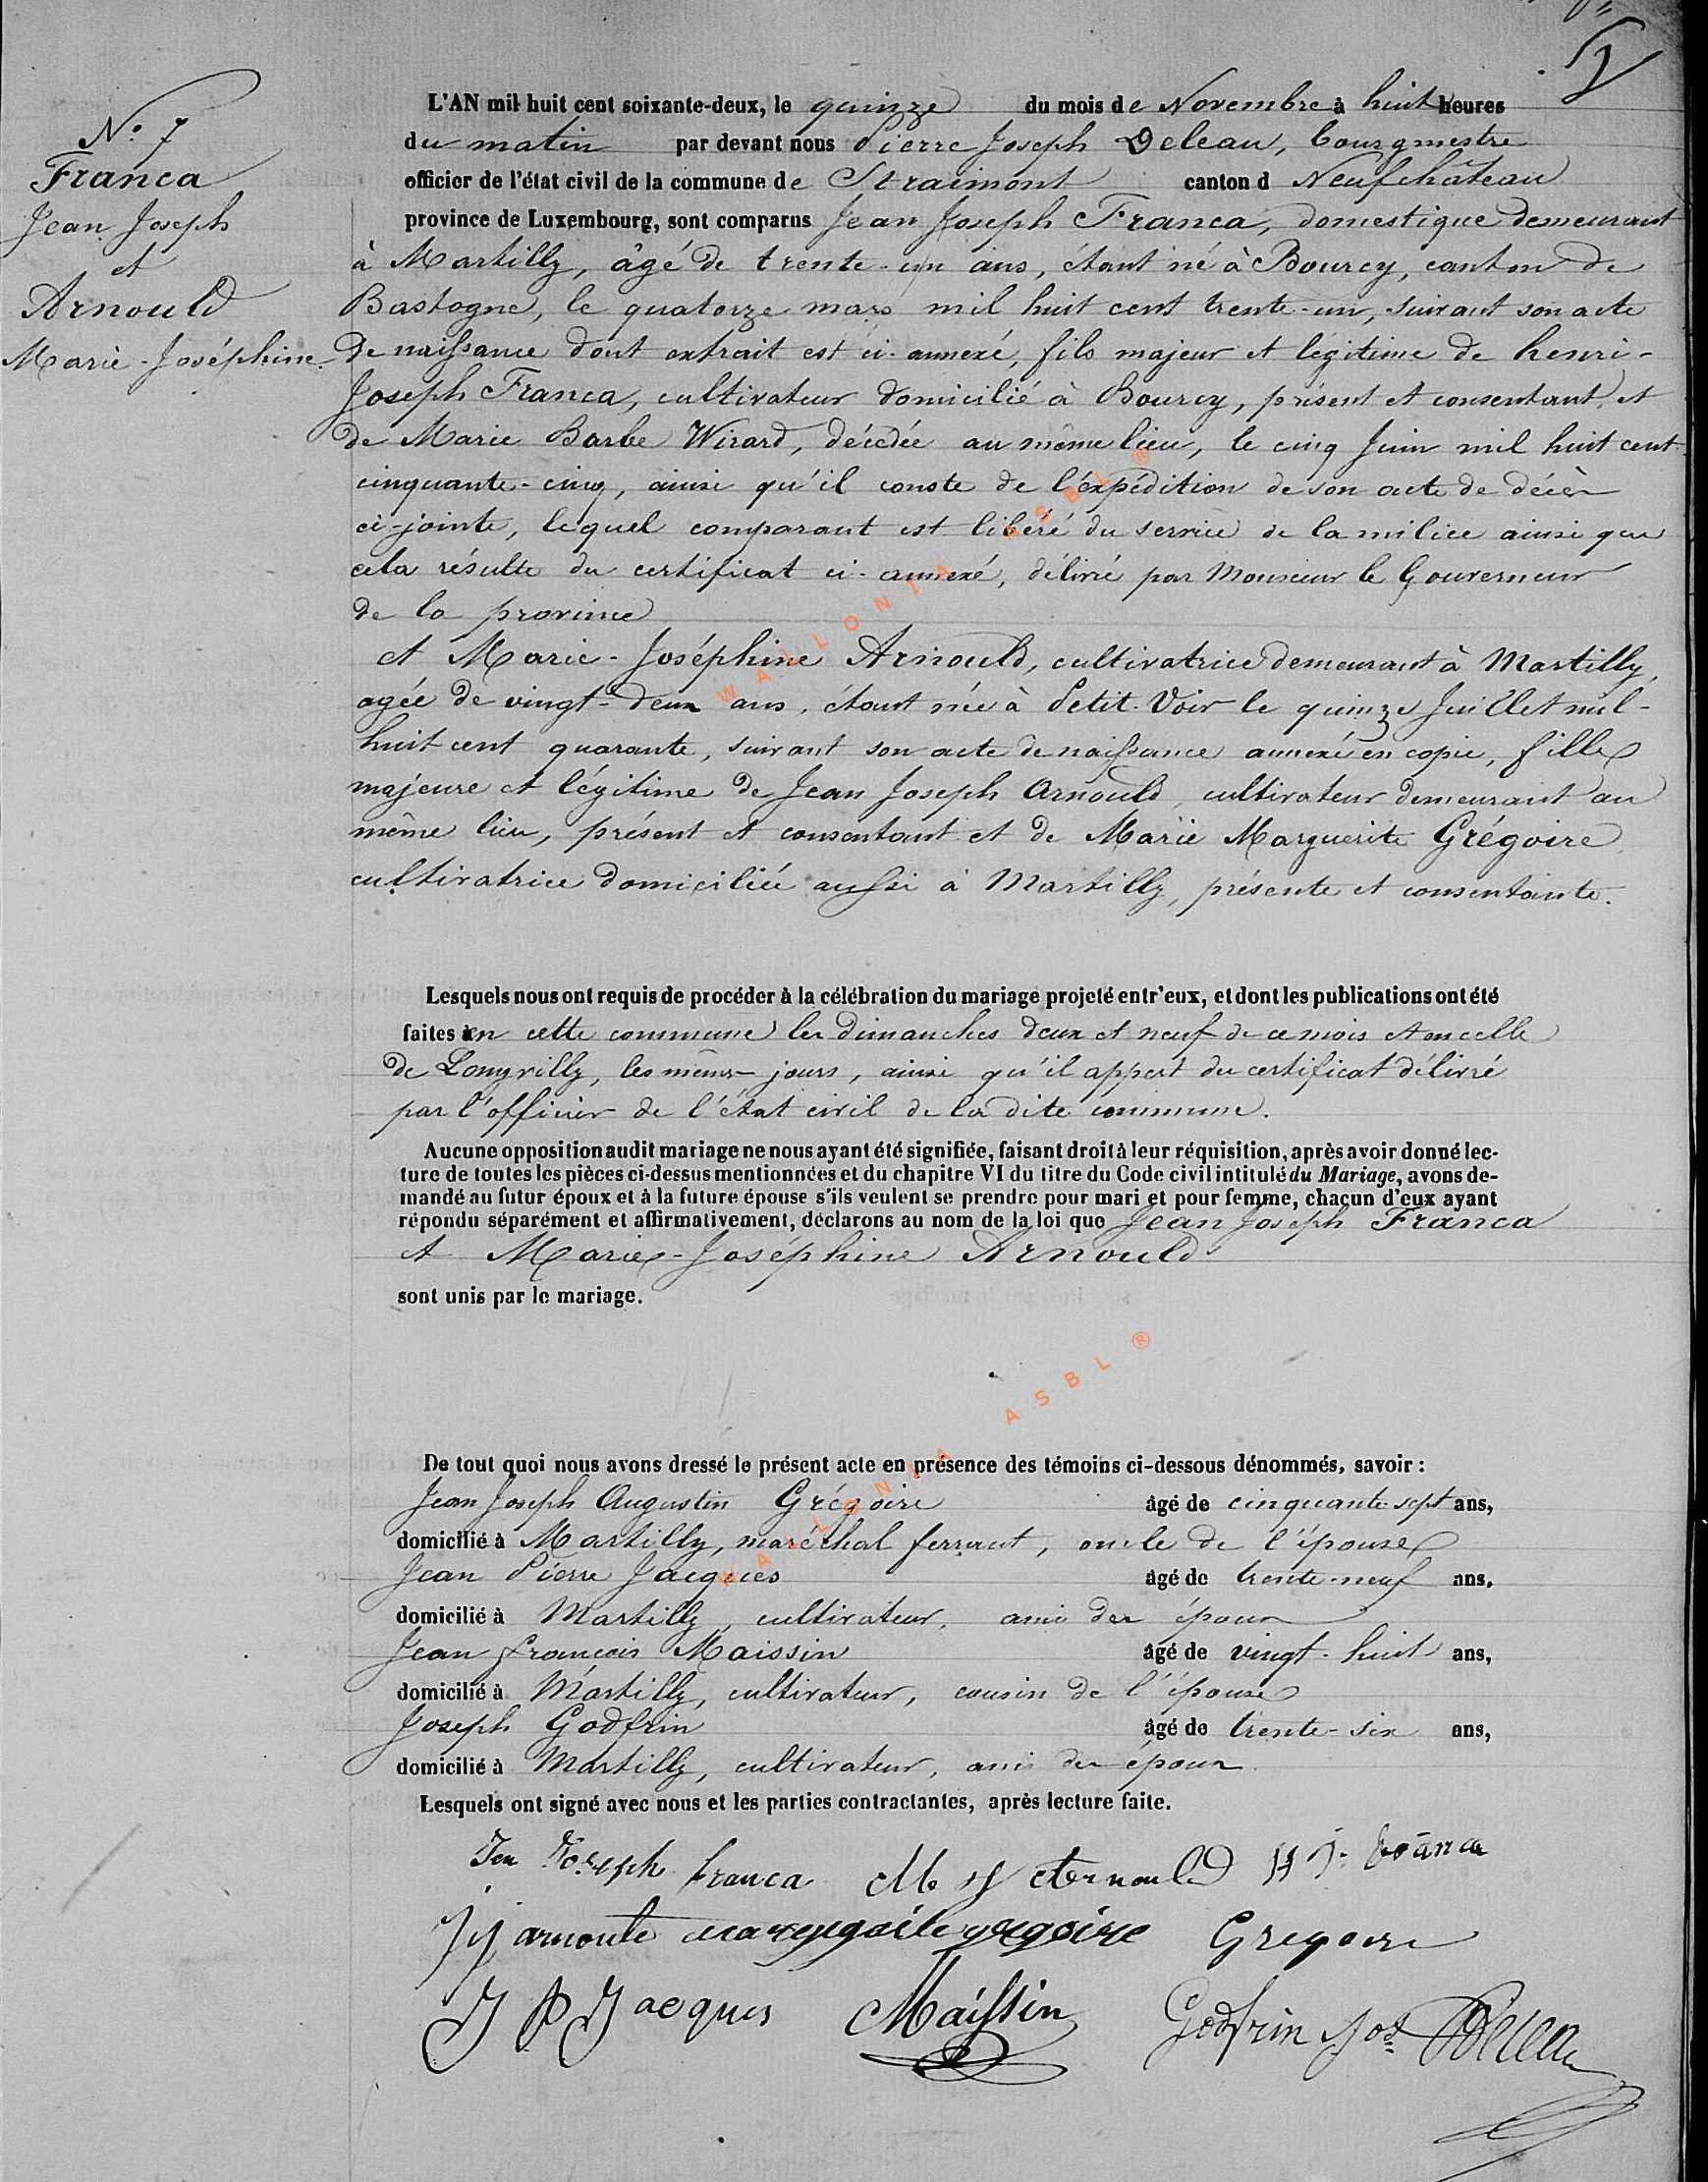 N.° 7
Franca
Jean Joseph
et
Arnould
Marie-Joséphine
L'AN mil huit cent soixante-deux, le quinze du mois de Novembre à huit heures
du matin par devant nous Pierre Joseph Deleau, bourgmestre
officier de l'état civil de la commune de Straimont canton d Neufchâteau
province de Luxembourg, sont comparus Jean Joseph Franca, domestique demeurant
à Martilly, âgé de trente-un ans, étant né à Bourcy, canton de
Bastogne, le quatorze mars mil huit cent trente-un, suivant son acte
de naissance dont extrait est ci-annexé, fils majeur et légitime de henri-
Joseph Franca, cultivateur domicilié à Bourcy, présent et consentant, et
de Marie Barbe Wirard, décédée au même lieu, le cinq Juin mil huit cent
cinquante-cinq, ainsi qu'il conste de l'expédition de son acte de décès
ci-jointe, lequel comparant est libéré du service de la milice ainsi que
cela résulte du certificat ci-annexé, délivré par Monsieur le Gouverneur
de la province
et Marie-Joséphine Arnould, cultivatrice demeurant à Martilly,
agée de vingt-deux ans, étant née à Petit-Voir le quinze Juillet mil-
huit cent quarante, suivant son acte de naissance annexé en copie, fille
majeure et légitime de Jean Joseph Arnould, cultivateur demeurant au
même lieu, présent et consentant et de Marie Marguerite Grégoire
cultivatrice domiciliée aussi à Martilly, présente et consentante.
Lesquels nous ont requis de procéder à la célébration du mariage projeté entr'eux, et dont les publications ont été
faites en cette commune les dimanches deux et neuf de ce mois et en celle
de Longvilly, les mêmes jours, ainsi qu'il appert du certificat délivré
par l'officier de l'état civil de la dite commune.
Aucune opposition audit mariage ne nous ayant été signifiée, faisant droit à leur réquisition, après avoir donné lec-
ture de toutes les pièces ci-dessus mentionnées et du chapitre VI du titre du Code civil intitulé du Mariage, avons de-
mandé au futur époux et à la future épouse s'ils veulent se prendre pour mari et pour femme, chacun d'eux ayant
répondu séparément et affirmativement, déclarons au nom de la loi que Jean Joseph Franca
et Marie-Joséphine Arnould
sont unis par le mariage.
De tout quoi nous avons dressé le présent acte en présence des témoins ci-dessous dénommés, savoir :
Jean Joseph Augustin Grégoire âgé de cinquante sept ans,
domicilié à Martilly, maréchal ferrant, oncle de l'épouse
Jean Pierre Jacques âgé de trente-neuf ans,
domicilié à Martilly, cultivateur, ami des époux
Jean françois Maissin âgé de vingt-huit ans,
domicilié à Martilly, cultivateur, cousin de l'épouse
Joseph Godfrin âgé de trente-six ans,
domicilié à Martilly, cultivateur, ami des époux
Lesquels ont signé avec nous et les parties contractantes, après lecture faite.
Jen Joseph franca M J Arnould H J. franca
J J arnould Gregoire
J P Jacques Maissin Godfrin Jos Deleau
WALLONIA ASBL ®
WALLONIA ASBL ®